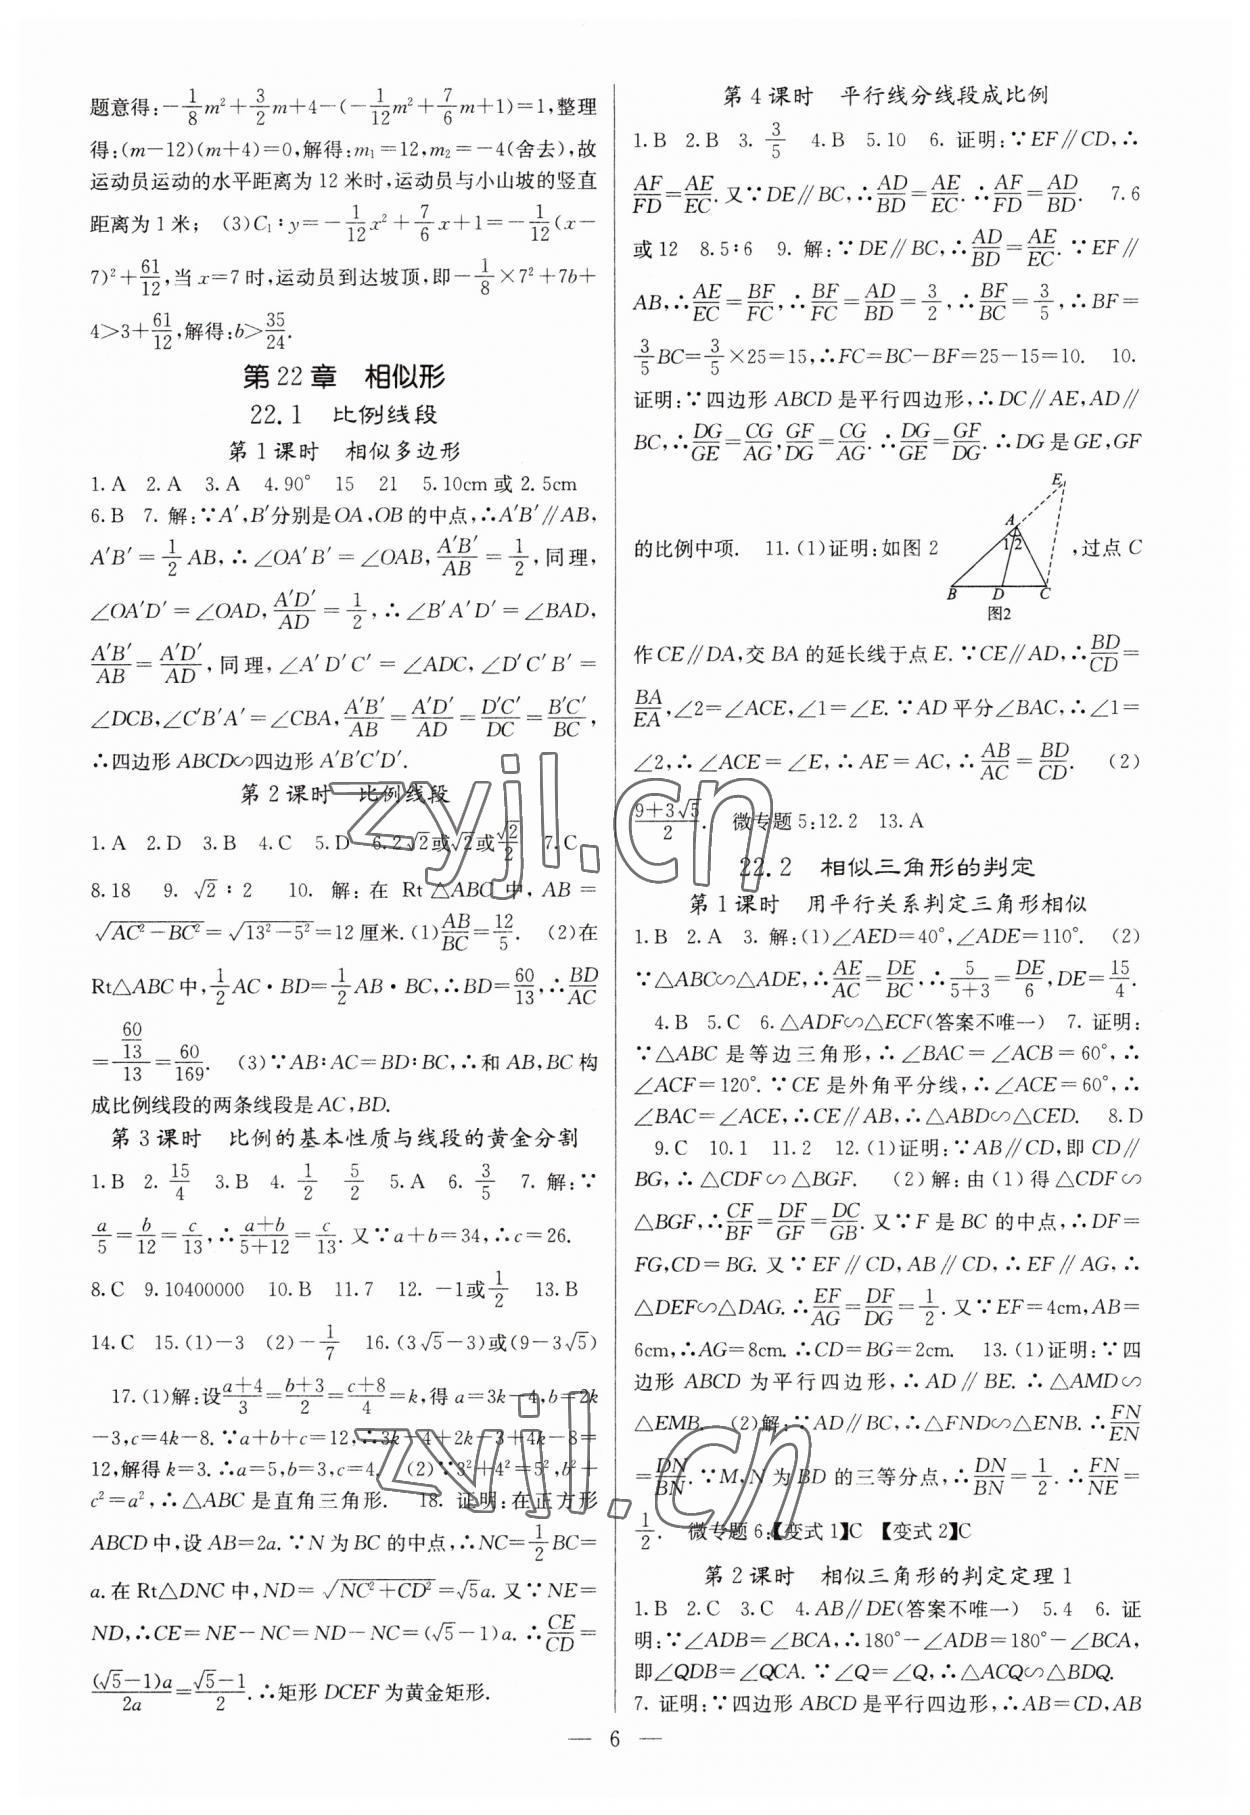 题意得:-1/8m²+3/2m+4-(-1/12m²+7/6m+1)=1,整理
得:(m-12)(m+4)=0,解得:m₁=12,m₂=-4(舍去),故
运动员运动的水平距离为12米时,运动员与小山坡的竖直
距离为1米; (3)C₁:y=-1/12x²+7/6x+1=-1/12(x-
7)²+61/12,当x=7时,运动员到达坡顶,即-1/8×7²+7b+
4>3+61/12,解得:b>35/24.
第22章 相似形
22.1 比例线段
第1课时 相似多边形
1.A 2.A 3.A 4.90° 15 21 5.10cm或2.5cm
6.B 7.解:∵A′,B′分别是OA,OB的中点,∴A′B′∥AB,
A′B′=1/2AB,∴∠OA′B′=∠OAB,A′B′/AB=1/2,同理,
∠OA′D′=∠OAD,A′D′/AD=1/2,∴∠B′A′D′=∠BAD,
A′B′/AB=A′D′/AD,同理,∠A′D′C′=∠ADC,∠D′C′B′=
∠DCB,∠C′B′A′=∠CBA,A′B′/AB=A′D′/AD=D′C′/DC=B′C′/BC,
∴四边形ABCD∽四边形A′B′C′D′.
第2课时 比例线段
1.A 2.D 3.B 4.C 5.D 6.2√2或√2或√2/2 7.C
8.18 9.√2∶2 10.解:在Rt△ABC中,AB=
√(AC²-BC²)=√(13²-5²)=12厘米.(1)AB/BC=12/5. (2)在
Rt△ABC中,1/2AC·BD=1/2AB·BC,∴BD=60/13,∴BD/AC
=(60/13)/13=60/169. (3)∵AB∶AC=BD∶BC,∴和AB,BC构
成比例线段的两条线段是AC,BD.
第3课时 比例的基本性质与线段的黄金分割
1.B 2.15/4 3.B 4.1/2 5/2 5.A 6.3/5 7.解:∵
a/5=b/12=c/13,∴(a+b)/(5+12)=c/13.又∵a+b=34,∴c=26.
8.C 9.10400000 10.B 11.7 12.-1或1/2 13.B
14.C 15.(1)-3 (2)-1/7 16.(3√5-3)或(9-3√5)
17.(1)解:设(a+4)/3=(b+3)/2=(c+8)/4=k,得a=3k-4,b=2k
-3,c=4k-8.∵a+b+c=12,∴3k-4+2k-3+4k-8=
12,解得k=3.∴a=5,b=3,c=4. (2)∵3²+4²=5²,b²+
c²=a²,∴△ABC是直角三角形. 18.证明:在正方形
ABCD中,设AB=2a.∵N为BC的中点,∴NC=1/2BC=
a.在Rt△DNC中,ND=√(NC²+CD²)=√5a.又∵NE=
ND,∴CE=NE-NC=ND-NC=(√5-1)a.∴CE/CD=
(√5-1)a/2a=(√5-1)/2.∴矩形DCEF为黄金矩形.
第4课时 平行线分线段成比例
1.B 2.B 3.3/5 4.B 5.10 6.证明:∵EF∥CD,∴
AF/FD=AE/EC.又∵DE∥BC,∴AD/BD=AE/EC.∴AF/FD=AD/BD. 7.6
或12 8.5∶6 9.解:∵DE∥BC,∴AD/BD=AE/EC.∵EF∥
AB,∴AE/EC=BF/FC,∴BF/FC=AD/BD=3/2,∴BF/BC=3/5,∴BF=
3/5BC=3/5×25=15,∴FC=BC-BF=25-15=10. 10.
证明:∵四边形ABCD是平行四边形,∴DC∥AE,AD∥
BC,∴DG/GE=CG/AG,GF/DG=CG/AG.∴DG/GE=GF/DG.∴DG是GE,GF
的比例中项. 11.(1)证明:如图2 ,过点C
E
A
1 2
B D C
图2
作CE∥DA,交BA的延长线于点E.∵CE∥AD,∴BD/CD=
BA/EA,∠2=∠ACE,∠1=∠E.∵AD平分∠BAC,∴∠1=
∠2,∴∠ACE=∠E,∴AE=AC,∴AB/AC=BD/CD. (2)
(9+3√5)/2. 微专题5:12.2 13.A
22.2 相似三角形的判定
第1课时 用平行关系判定三角形相似
1.B 2.A 3.解:(1)∠AED=40°,∠ADE=110°. (2)
∵△ABC∽△ADE,∴AE/AC=DE/BC,∴5/(5+3)=DE/6,DE=15/4.
4.B 5.C 6.△ADF∽△ECF(答案不唯一) 7.证明:
∵△ABC是等边三角形,∴∠BAC=∠ACB=60°,∴
∠ACF=120°.∵CE是外角平分线,∴∠ACE=60°,∴
∠BAC=∠ACE,∴CE∥AB,∴△ABD∽△CED. 8.D
9.C 10.1 11.2 12.(1)证明:∵AB∥CD,即CD∥
BG,∴△CDF∽△BGF. (2)解:由(1)得△CDF∽
△BGF,∴CF/BF=DF/GF=DC/GB.又∵F是BC的中点,∴DF=
FG,CD=BG.又∵EF∥CD,AB∥CD,∴EF∥AG,∴
△DEF∽△DAG.∴EF/AG=DF/DG=1/2.又∵EF=4cm,AB=
6cm,∴AG=8cm.∴CD=BG=2cm. 13.(1)证明:∵四
边形ABCD为平行四边形,∴AD∥BE.∴△AMD∽
△EMB. (2)解:∵AD∥BC,∴△FND∽△ENB.∴FN/EN
=DN/BN.∵M,N为BD的三等分点,∴DN/BN=1/2.∴FN/NE=
1/2. 微专题6:【变式1】C 【变式2】C
第2课时 相似三角形的判定定理1
1.B 2.C 3.C 4.AB∥DE(答案不唯一) 5.4 6.证
明:∵∠ADB=∠BCA,∴180°-∠ADB=180°-∠BCA,
即∠QDB=∠QCA.∵∠Q=∠Q,∴△ACQ∽△BDQ.
7.证明:∵四边形ABCD是平行四边形,∴AB=CD,AB
— 6 —
zyjl.cn
zyjl.cn